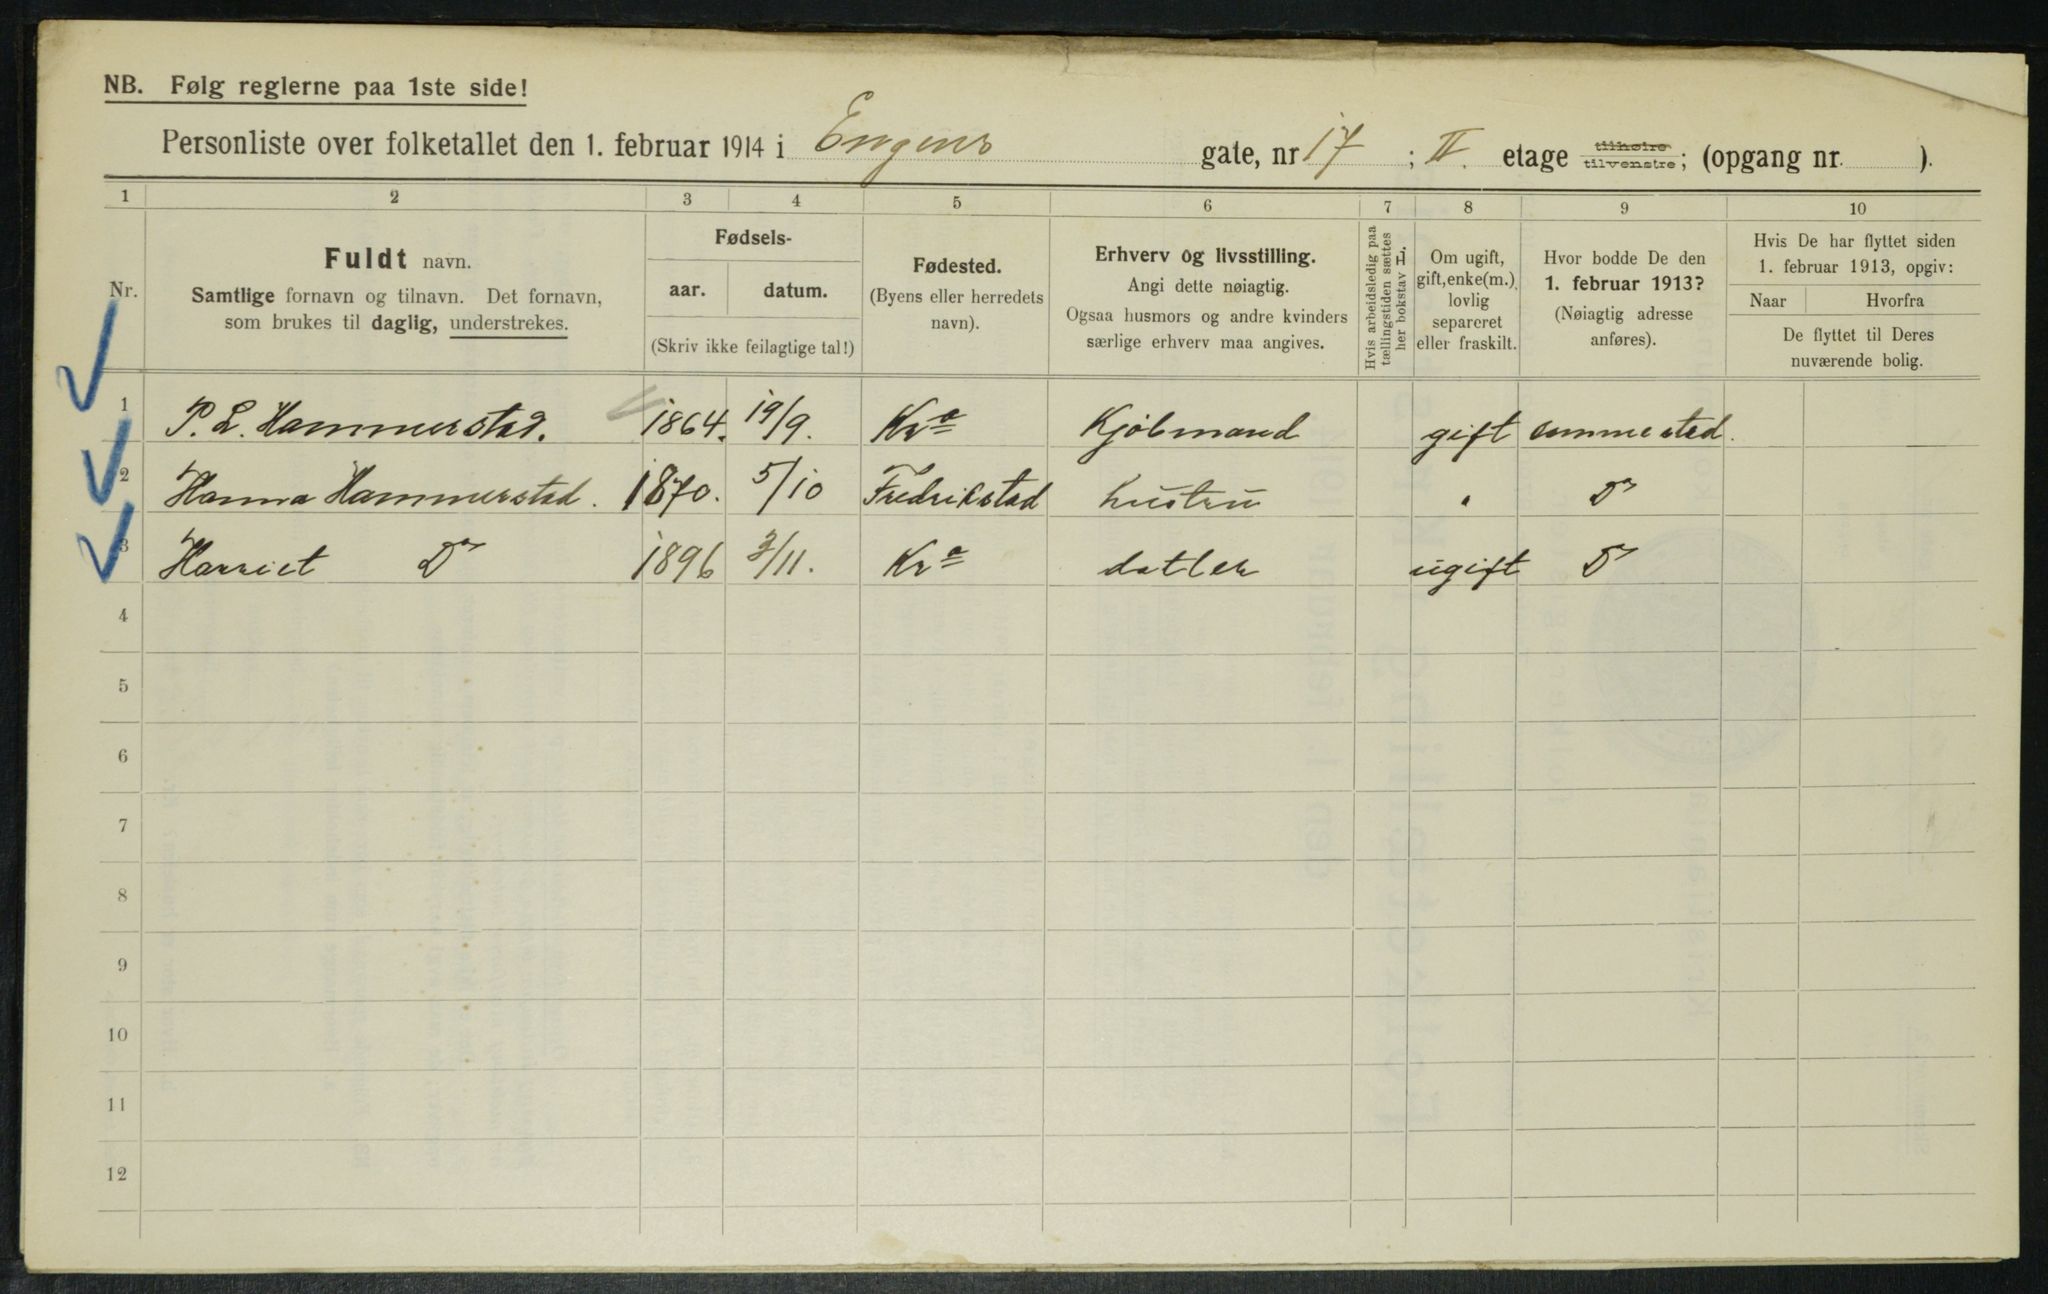 NB. Følg reglerne paa 1ste side!
Personliste over folketallet den 1. februar 1914 i Engens gate, nr 17 ; II. etage tilhøire tilvenstre; (opgang nr. ).
1 2 3 4 5 6 7 8 9 10
Nr.
Fuldt navn.
Samtlige fornavn og tilnavn. Det fornavn,
som brukes til daglig, understrekes.
Fødsels-
aar. datum.
(Skriv ikke feilagtige tal!)
Fødested.
(Byens eller herredets
navn).
Erhverv og livsstilling.
Angi dette nøiagtig.
Ogsaa husmors og andre kvinders
særlige erhverv maa angives.
Hvis arbeidsledig paa
tællingstiden sættes
her bokstav L.
Om ugift,
gift, enke(m.),
lovlig
separeret
eller fraskilt.
Hvor bodde De den
1. februar 1913?
(Nøiagtig adresse
anføres).
Hvis De har flyttet siden
1. februar 1913, opgiv:
Naar Hvorfra
De flyttet til Deres
nuværende bolig.
1 P. L. Hammerstad. 1864. 19/9. Kra Kjøbmand gift sammested.
2 Hanna Hammerstad. 1870. 5/10 Fredrikstad hustru " Do
3 Harriet Do 1896 3/11. Kra datter ugift Do
4
5
6
7
8
9
10
11
12